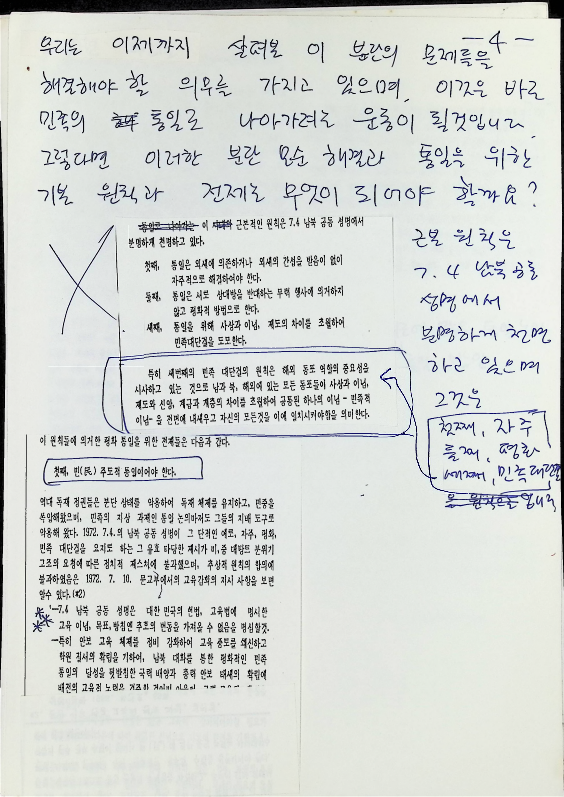 -4-
우리는 이제까지 살펴본 이 분란의 문제들을
해결해야 할 의무를 가지고 있으며, 이것은 바로
민족의 통일로 나아가려는 운동이 될것입니다.
그렇다면 이러한 분란 모순 해결과 통일을 위한
기본 원칙과 전제는 무엇이 되어야 할까요?
통일로 나아가는 이 근본적인 원칙은 7.4 남북 공동 성명에서
분명하게 천명하고 있다.
첫째, 통일은 외세에 의존하거나 외세의 간섭을 받음이 없이
자주적으로 해결하여야 한다.
둘째, 통일은 서로 상대방을 반대하는 무력 행사에 의거하지
않고 평화적 방법으로 한다.
세째, 통일을 위해 사상과 이념, 제도의 차이를 초월하여
민족대단결을 도모한다.
특히 세번째의 민족 대단결의 원칙은 해외 동포 역할의 중요성을
시사하고 있는 것으로 남과 북, 해외에 있는 모든 동포들이 사상과 이념,
제도와 신앙, 계급과 계층의 차이를 초월하여 공통된 하나의 이념 - 민족적
이념- 을 전면에 내세우고 자신의 모든것을 이에 일치시켜야함을 의미한다.
근본 원칙은
7.4 남북 공동
성명에서
분명하게 천명
하고 있으며
그것은
첫째, 자주
둘째, 평화
세째, 민족대단결
을 원칙으로 입니다
이 원칙들에 의거한 평화 통일을 위한 전제들은 다음과 같다.
첫째, 민(民) 주도적 통일이어야 한다.
역대 독재 정권들은 분단 상태를 악용하여 독재 체제를 유지하고, 민중을
억압해왔으며, 민족의 지상 과제인 통일 논의마저도 그들의 지배 도구로
악용해 왔다. 1972. 7.4.의 남북 공동 성명이 그 단적인 예로, 자주, 평화,
민족 대단결을 요지로 하는 그 유효 타당한 제시가 미,중 데탕트 분위기
고조의 요청에 따른 정치적 제스처에 불과했으며, 추상적 원칙의 합의에
불과하였음은 1972. 7. 10. 문교부에서의 교육강화의 지시 사항을 보면
알수 있다.(*2)
'-7.4 남북 공동 성명은 대한 민국의 헌법, 교육법에 명시한
교육 이념, 목표, 방침엔 추호의 변동을 가져올 수 없음을 명심할것.
-특히 안보 교육 체제를 정비 강화하여 교육 풍토를 쇄신하고
학원 질서의 확립을 기하여, 남북 대화를 통한 평화적인 민족
통일의 달성을 뒷받침한 국력 배양과 총력 안보 태세의 확립에
배전의 교육적 노력을